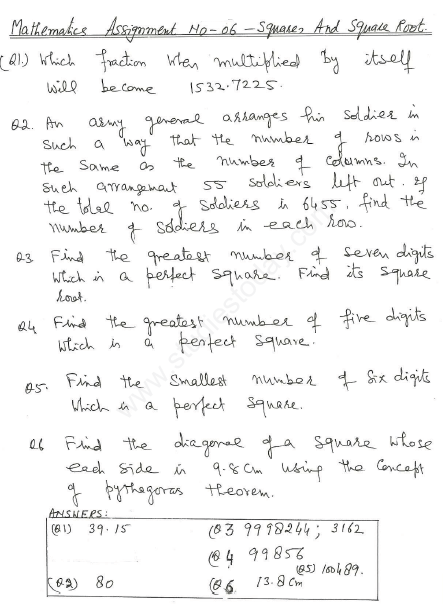 Mathematics Assignment NO-06 - Squares And Square Root.
(Q1.) Which fraction when multiplied by itself
will become 1532.7225.
Q2. An army general arranges his soldier in
such a way that the number of rows is
the same as the number of columns. In
such arrangement 55 soldiers left out. If
the total no. of soldiers is 6455, find the
number of soldiers in each row.
Q3 Find the greatest number of seven digits
which is a perfect square. Find its square
root.
Q4 Find the greatest number of five digits
which is a perfect square.
Q5. Find the smallest number of six digits
which is a perfect square.
Q6 Find the diagonal of a square whose
each side is 9.8cm using the concept
of pythagoras theorem.
ANSWERS:
(Q1) 39.15 (Q3 9998244; 3162
(Q4 99856
(Q5) 100489.
(Q2) 80 (Q6 13.8cm
www.studiestoday.com